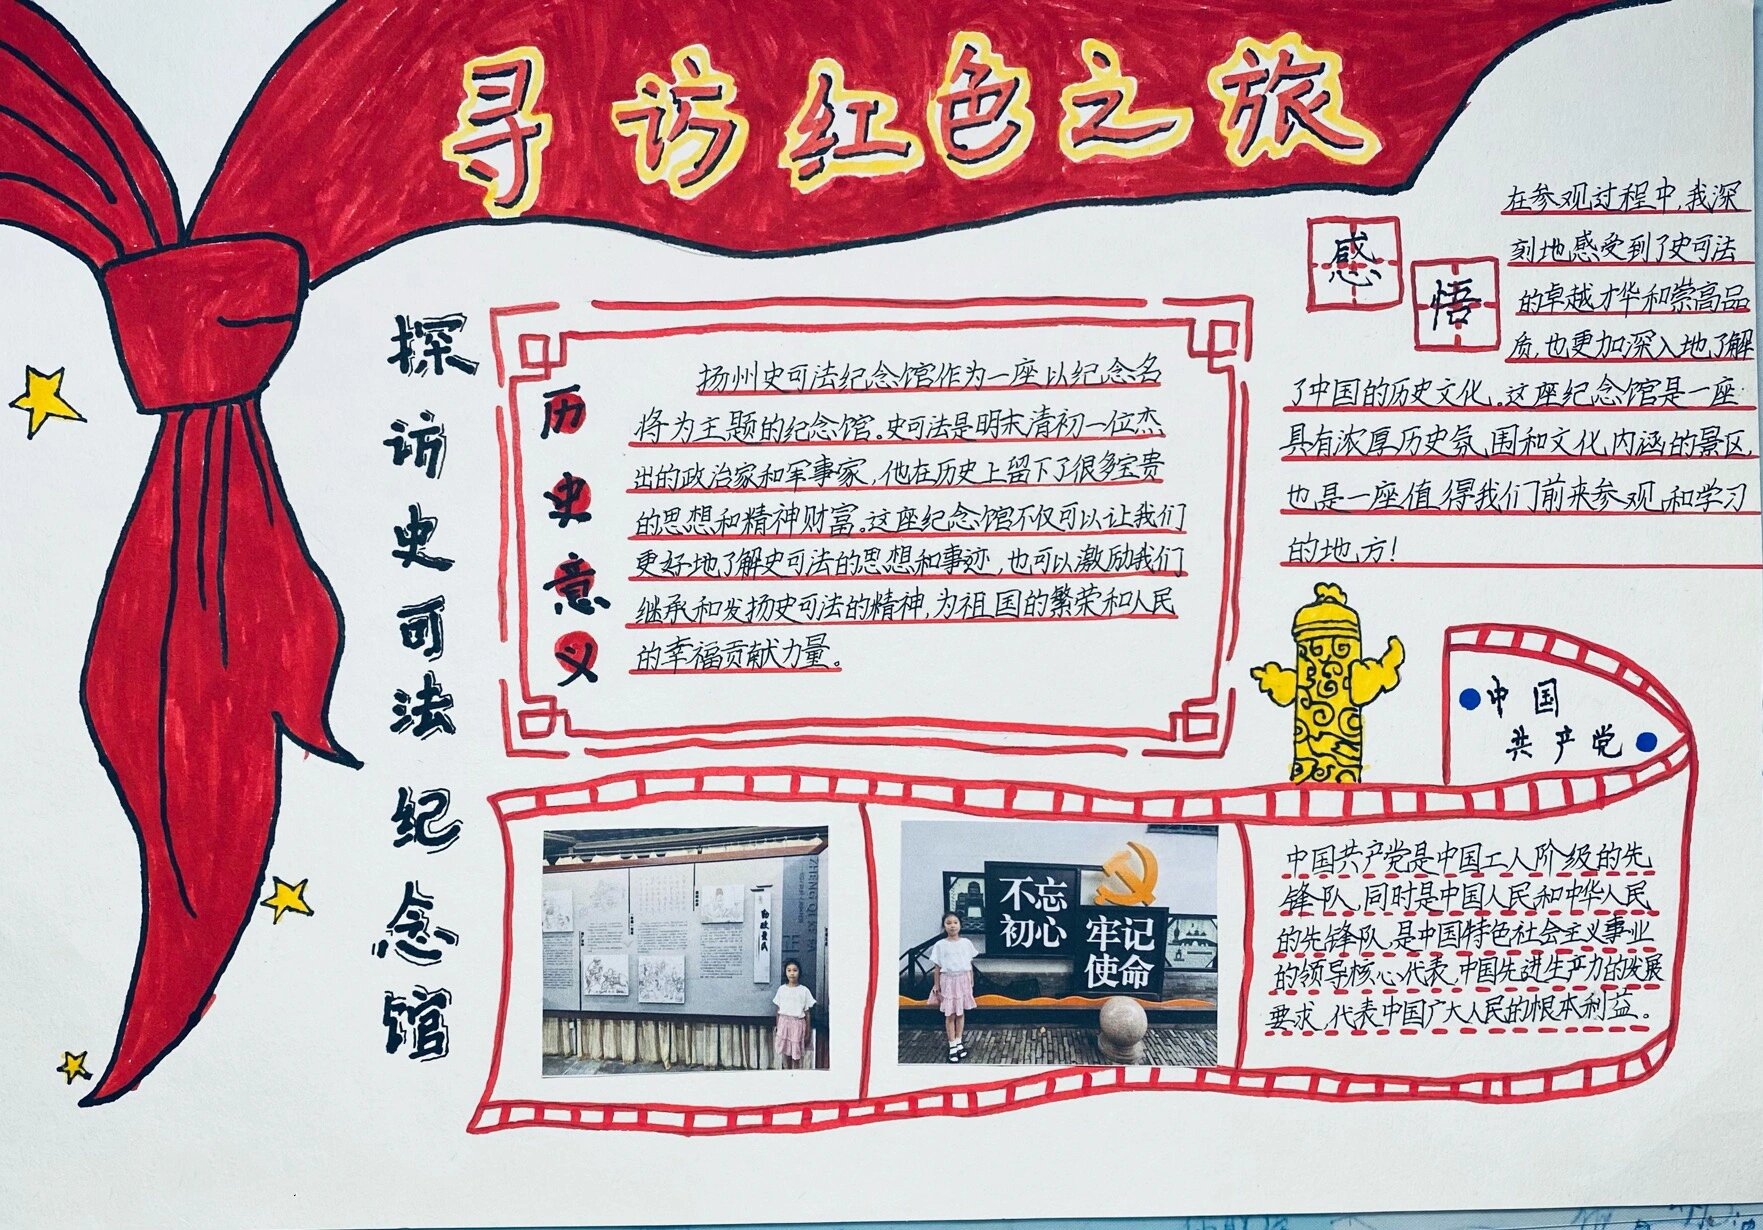 寻访红色之旅
探访史可法纪念馆
历史意义
扬州史可法纪念馆作为一座以纪念名
将为主题的纪念馆。史可法是明末清初一位杰
出的政治家和军事家，他在历史上留下了很多宝贵
的思想和精神财富。这座纪念馆不仅可以让我们
更好地了解史可法的思想和事迹，也可以激励我们
继承和发扬史可法的精神，为祖国的繁荣和人民
的幸福贡献力量。
感悟
在参观过程中，我深
刻地感受到了史可法
的卓越才华和崇高品
质，也更加深入地了解
了中国的历史文化。这座纪念馆是一座
具有浓厚历史氛围和文化内涵的景区，
也是一座值得我们前来参观和学习
的地方！
中国
共产党
不忘
初心
牢记
使命
中国共产党是中国工人阶级的先
锋队，同时是中国人民和中华人民
的先锋队，是中国特色社会主义事业
的领导核心代表，中国先进生产力的发展
要求，代表中国广大人民的根本利益。